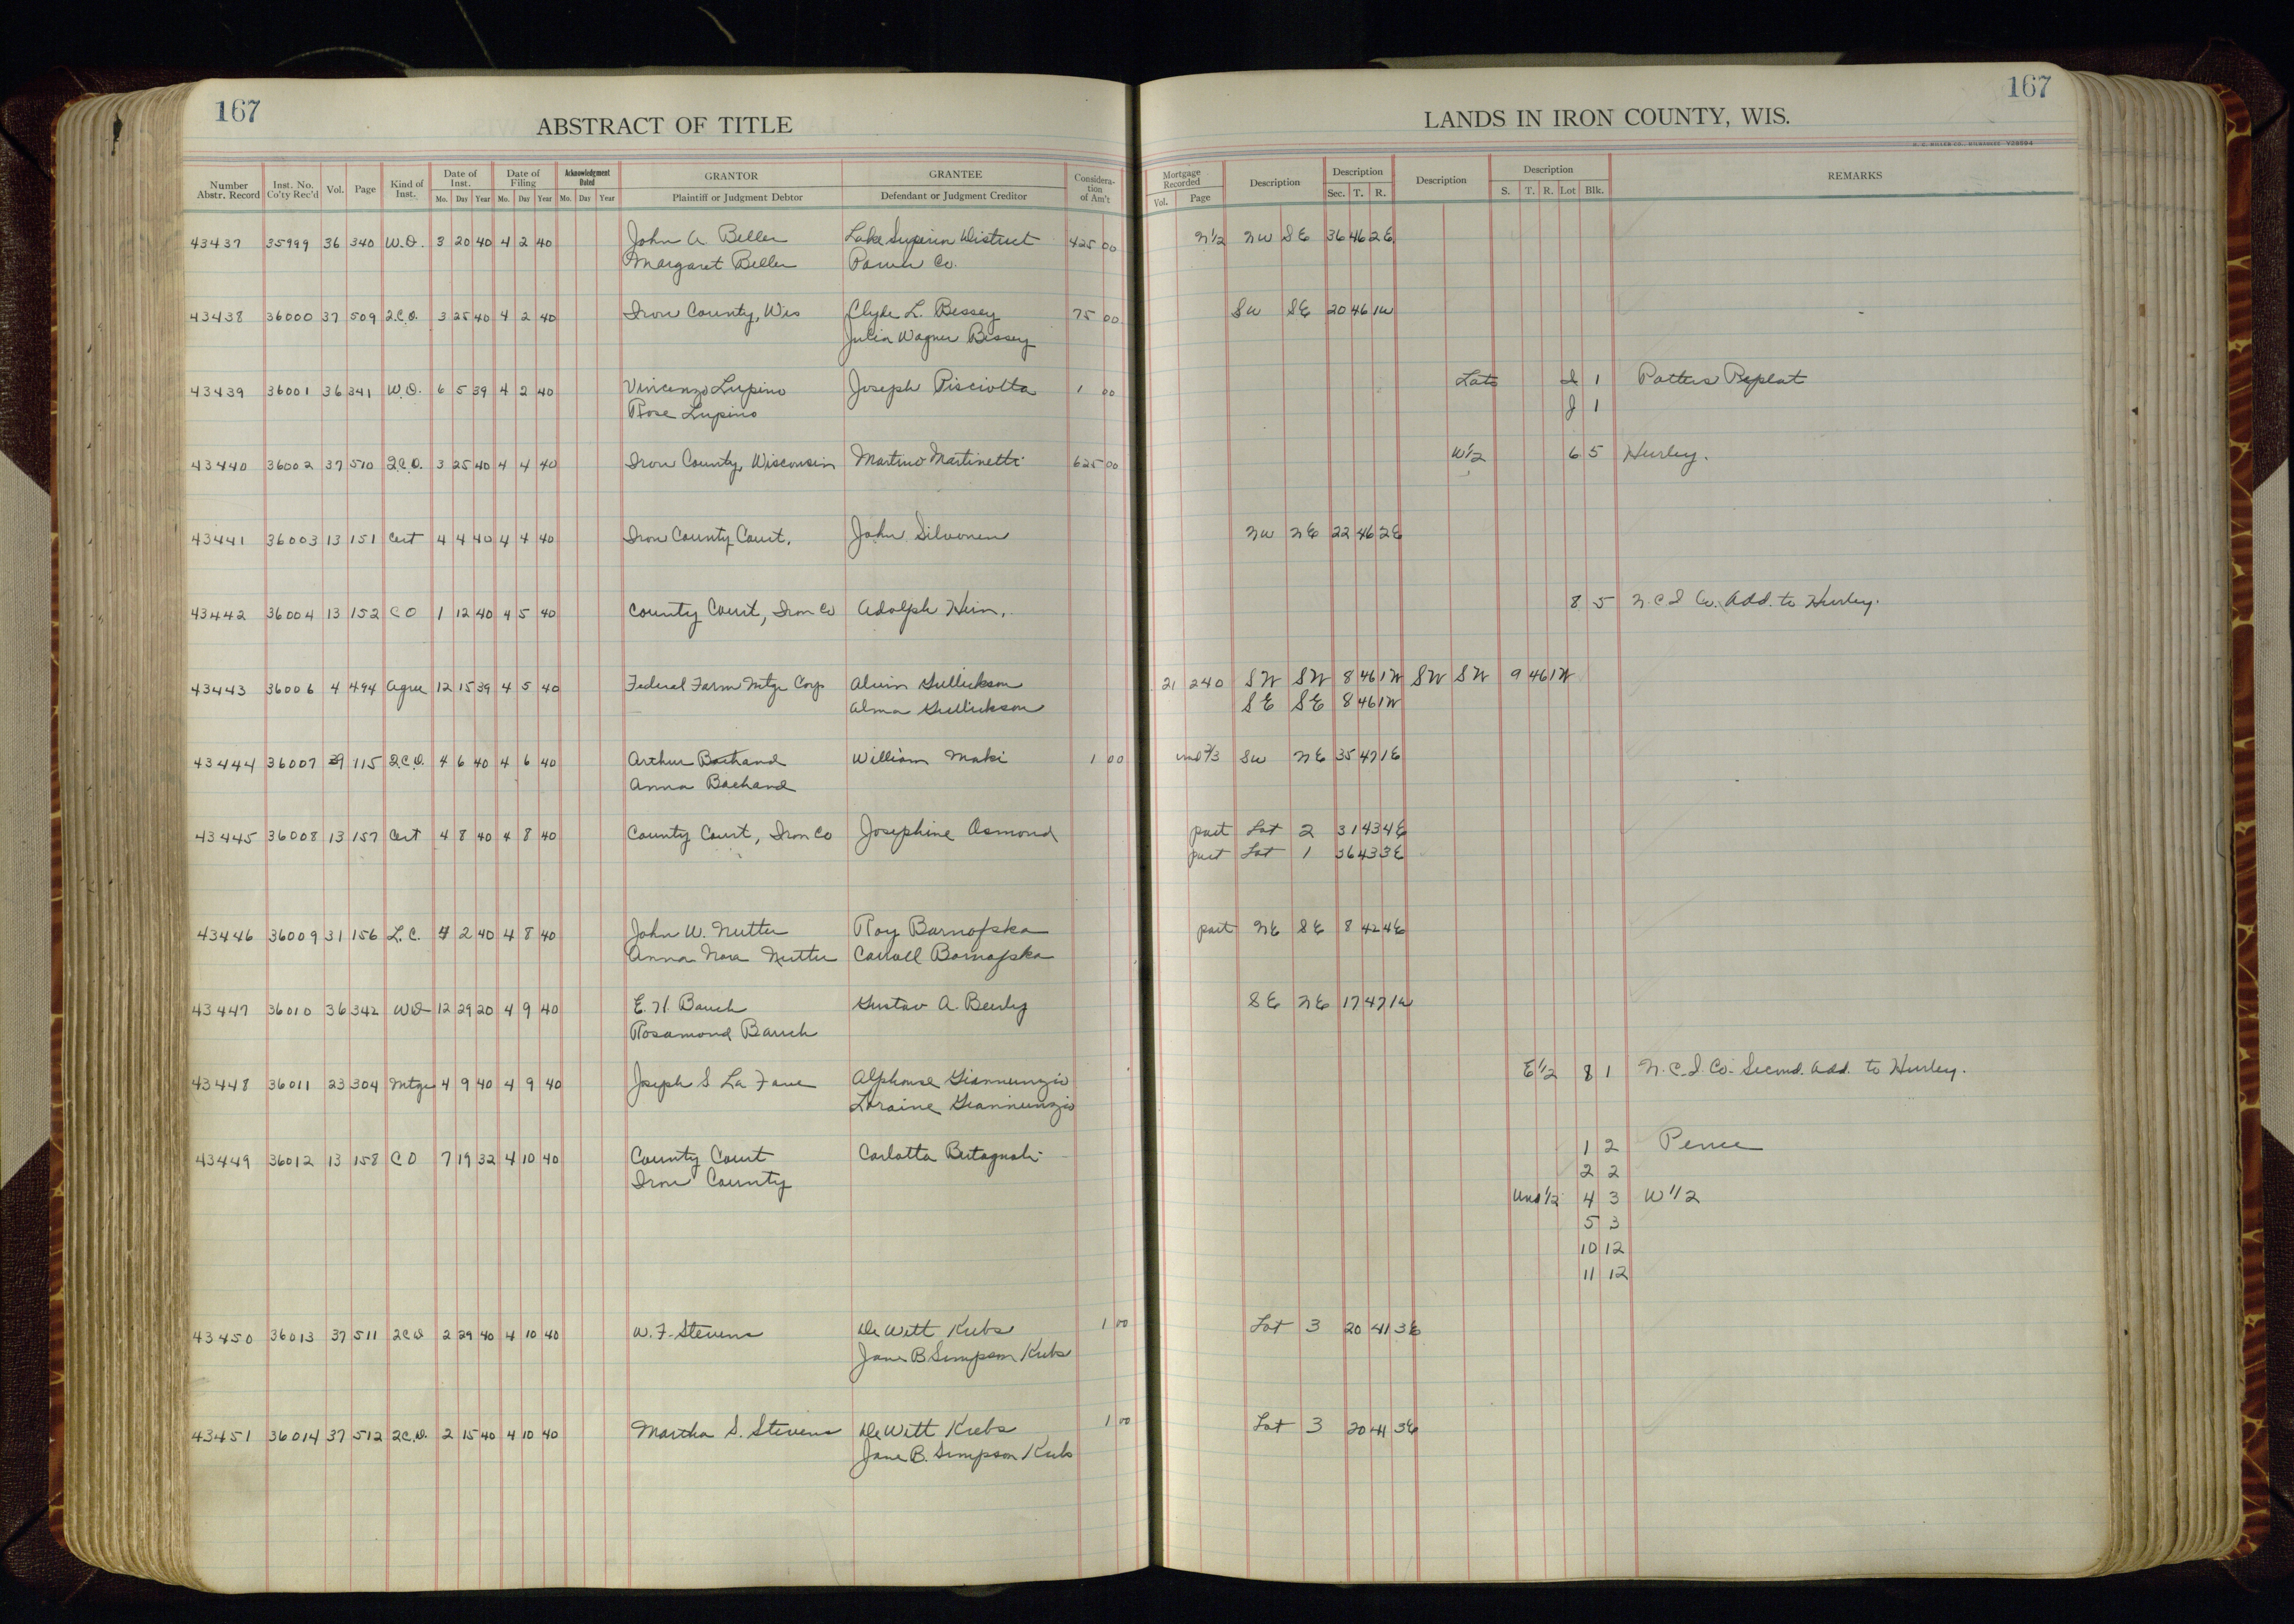 167
ABSTRACT OF TITLE
Number Abstr. Record Inst. No. Co'ty Rec'd Vol. Page Kind of Inst. Date of Inst. Mo. Day Year Date of Filing Mo. Day Year Acknowledgment Dated Mo. Day Year GRANTOR Plaintiff or Judgment Debtor GRANTEE Defendant or Judgment Creditor Considera-tion of Am't
43437 35999 36 340 W.D. 3 20 40 4 2 40 John A. Beller Lake Superior District 425 00
Margaret Beller Power Co.
43438 36000 37 509 2.C.D. 3 25 40 4 2 40 Iron County, Wis Clyde L. Bessey 75 00
Julia Wagner Bessey
43439 36001 36 341 W.D. 6 5 39 4 2 40 Vincenzo Lupino Joseph Pisciotta 1 00
Rose Lupino
43440 36002 37 510 2.C.D. 3 25 40 4 4 40 Iron County, Wisconsin Martino Martinetti 625 00
43441 36003 13 151 Cert 4 4 40 4 4 40 Iron County Court, John Silvonen
43442 36004 13 152 CD 1 12 40 4 5 40 County Court, Iron Co Adolph
43443 36006 4 494 Agree 12 15 39 4 5 40 Federal Farm Mtge Corp Alvin Gullickson
Alma Gullickson
43444 36007 39 115 2.C.D. 4 6 40 4 6 40 Arthur Bachand William Maki 1 00
Anna Bachand
43445 36008 13 157 Cert 4 8 40 4 8 40 County Court, Iron Co Josephine Osmond
43446 36009 31 156 L.C. 4 2 40 4 8 40 John W. Nutter Roy Barnofska
Anna Nora Nutter Carroll Barnofska
43447 36010 36 342 WD 12 29 20 4 9 40 E. H. Bauch Gustav A.
Rosamond Bauch
43448 36011 23 304 Mtge 4 9 40 4 9 40 Joseph S La Fave Alphonse Giannunzio
Loraine Giannunzio
43449 36012 13 158 CD 7 19 32 4 10 40 County Court Carlotta
Iron County
43450 36013 37 511 2CD 2 29 40 4 10 40 W. F. Stevens De Witt Krebs 1 00
Jane B Simpson Krebs
43451 36014 37 512 2C.D. 2 15 40 4 10 40 Martha S. Stevens De Witt Krebs 1 00
Jane B. Simpson Krebs
167
LANDS IN IRON COUNTY, WIS.
H. C. MILLER CO., MILWAUKEE V28594
Mortgage Recorded Vol. Page Description Description Sec. T. R. Description Description S. T. R. Lot Blk. REMARKS
N1/2 NW SE 36 46 2E
SW SE 20 46 1W
Lots I 1 Potters Replat
J 1
W1/2 6 5 Hurley.
NW NE 22 46 2E
8 5 N.C.I Co. Add. to Hurley.
21 240 SW SW 8 46 1W SW SW 9 46 1W
SE SE 8 46 1W
und 2/3 SW NE 35 47 1E
part Lot 2 31 43 4E
part Lot 1 36 43 3E
part NE SE 8 42 4E
SE NE 17 47 1W
E1/2 8 1 N.C.I. Co. Second. Add. to Hurley.
1 2 Pence
2 2
Und 1/2 4 3 W 1/2
5 3
10 12
11 12
Lot 3 20 41 3E
Lot 3 20 41 3E